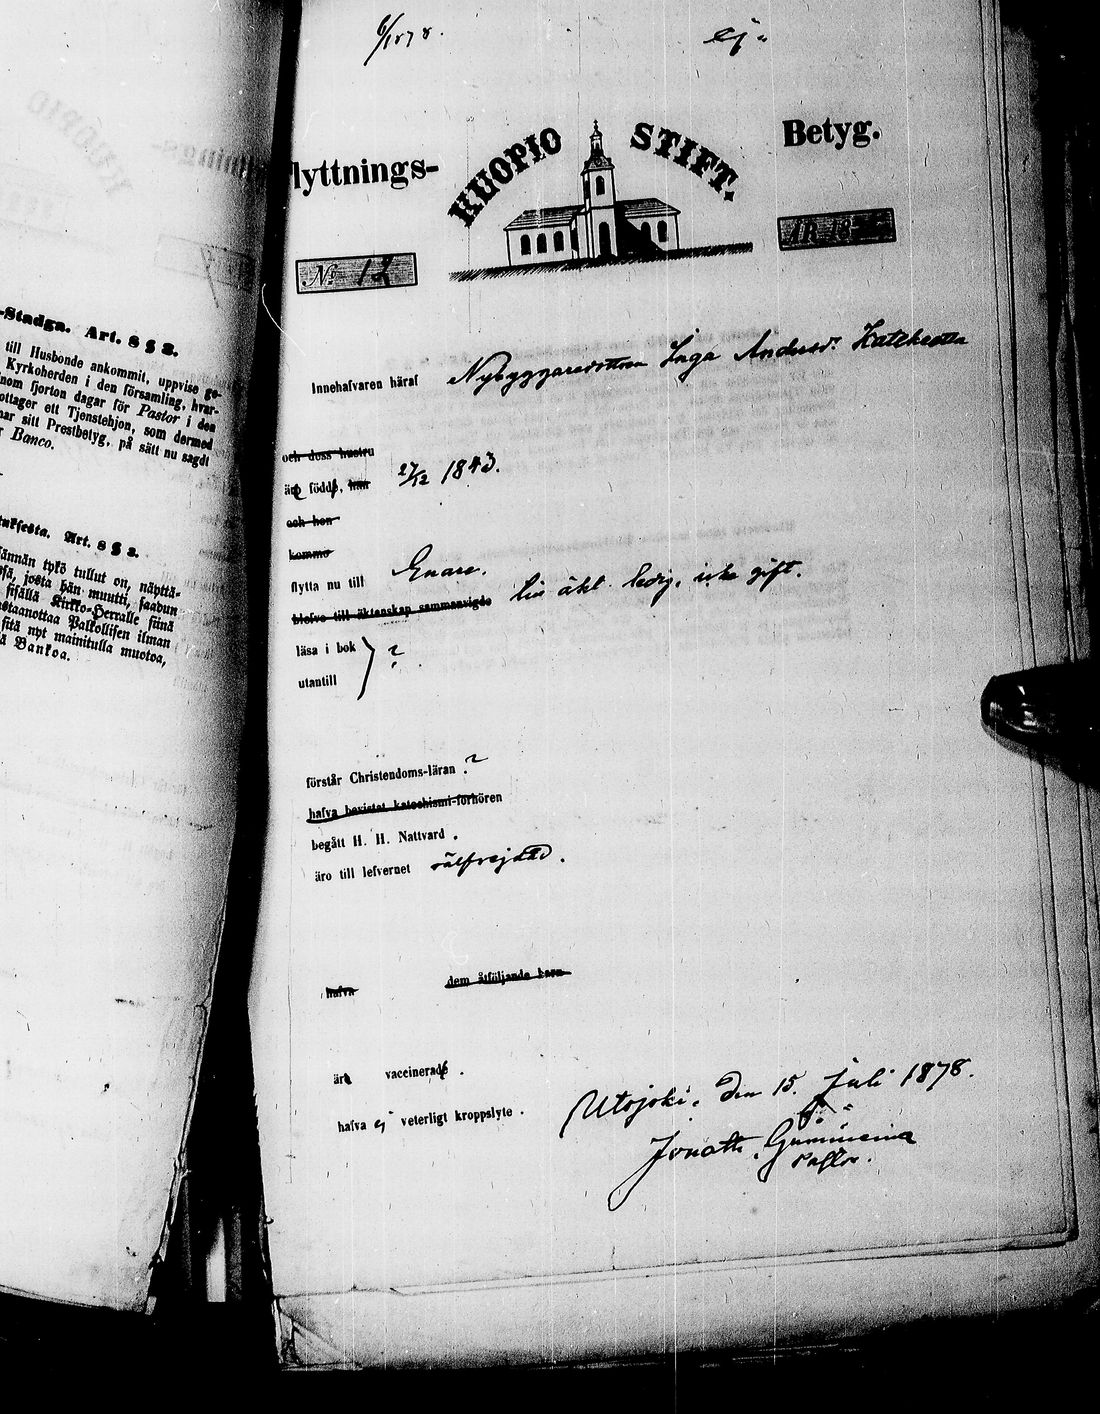 -Stadga. Art. 8 § 3.
till Husbonde ankommit, uppvise ge-
Kyrkoherden i den församling, hvar-
inom fjorton dagar för Pastor i den
ottager ett Tjenstehjon, som dermed
har sitt Prestbetyg, på sätt nu sagdt
r Banco.
Art. 8 § 3.
tykö tullut on, näyttä-
josta hän muutti, saadun
sisällä Kirkko-Herralle siinä
staanottaa Palkollisen ilman
sitä nyt mainitulla muotoa,
Bankoa.
6/1878.
ej.
lyttnings-
KUOPIO STIFT.
Betyg.
No 12
ÅR 18
Innehafvaren häraf Nybyggaredottren Inga Andersdr Katekeetta
och dess hustru
äro födde, han 27/12 1843.
och hon
komma
flytta nu till Enare.
blefvo till äktenskap sammanvigde till äkt. ledig, icke gift.
läsa i bok
utantill ?
förstår Christendoms-läran ?
hafva bevistat katechismi-förhören
begått H. H. Nattvard .
äro till lefvernet välfrejdad.
hafva dem åtföljande barn
äro vaccinerade .
hafva ej veterligt kroppslyte .
Utsjoki, den 15. Juli 1878.
Jonath.
Pastor.